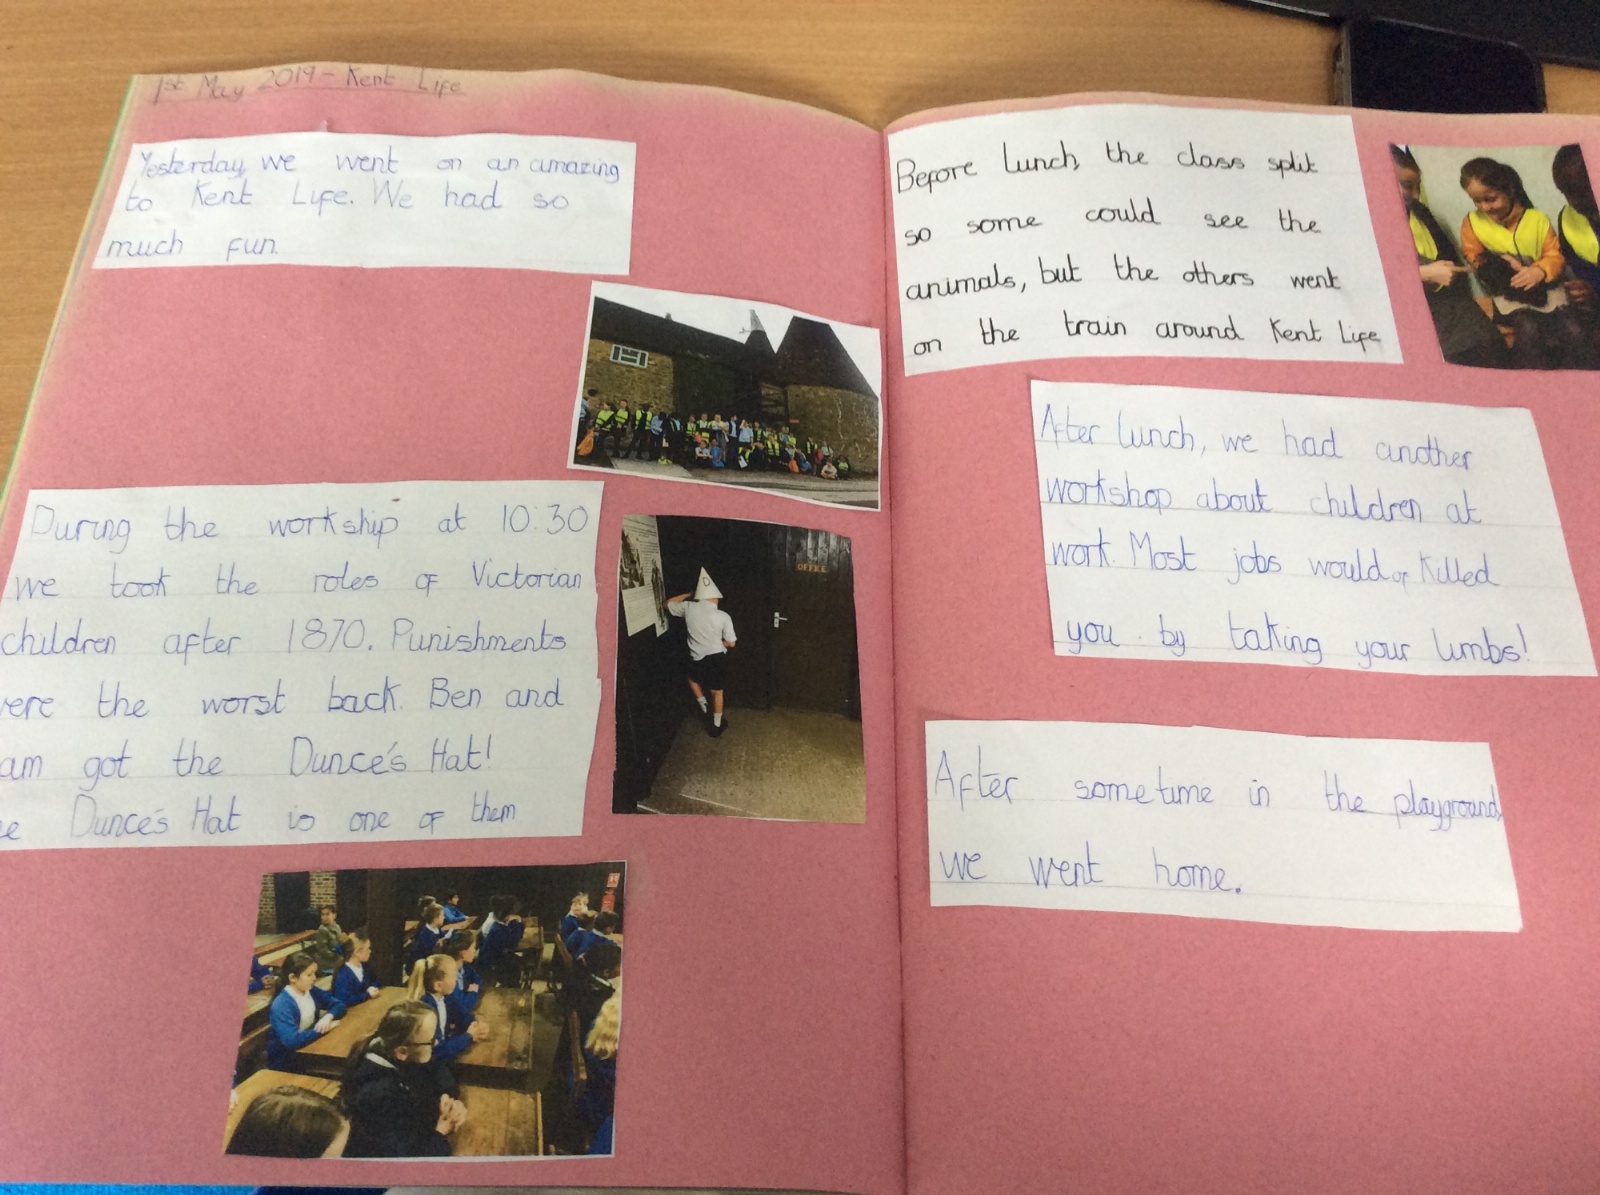 1st May 2019 - Kent Life
Yesterday, we went on an amazing
to Kent Life. We had so
much fun.
During the workship at 10:30
we took the roles of Victorian
children after 1870. Punishments
ere the worst back. Ben and
am got the Dunce's Hat!
e Dunce's Hat is one of them
OFFICE
Before lunch, the class split
so some could see the
animals, but the others went
on the train around Kent Life
After lunch, we had another
workshop about children at
work. Most jobs would of killed
you by taking your limbs!
After sometime in the playground,
we went home.